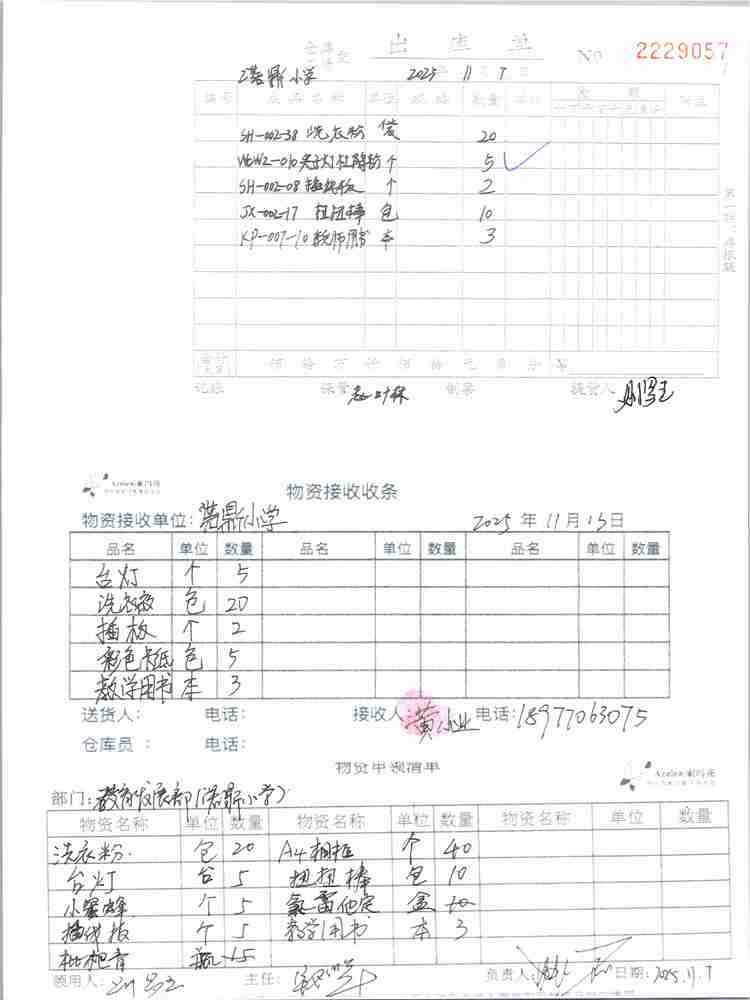 出库单
No 2229057
小学 2025 11 7
编号 产品名称 单位 规格 数量 单价 金额 附注
SH-002-38 洗衣粉 袋 20
个 5
SH-002-08 插线板 个 2
JX-002-17 扭扭棒 包 10
KP-007-10 教师用书 本 3
合计 佰 拾 万 仟 佰 拾 元 角 分 ¥
记账 保管 制票 提货人
Azalea
物资接收收条
物资接收单位: 鼎小学 2025 年 11 月 13 日
品名 单位 数量 品名 单位 数量 品名 单位 数量
台灯 个 5
洗衣液 包 20
插板 个 2
彩色卡纸 包 5
教学用书 本 3
送货人: 电话: 接收人: 黄 电话: 18977063075
仓库员 : 电话:
物资申领清单
Azalea
部门: 教育发展部(鼎小学)
物资名称 单位 数量 物资名称 单位 数量 物资名称 单位 数量
洗衣粉 包 20 A4相框 个 40
台灯 台 5 扭扭棒 包 10
小蜜蜂 个 5 氯雷他定 盒 10
插线板 个 5 教学用书 本 3
枇杷膏 瓶 15
领用人: 主任: 负责人: 日期: 2025.11.7